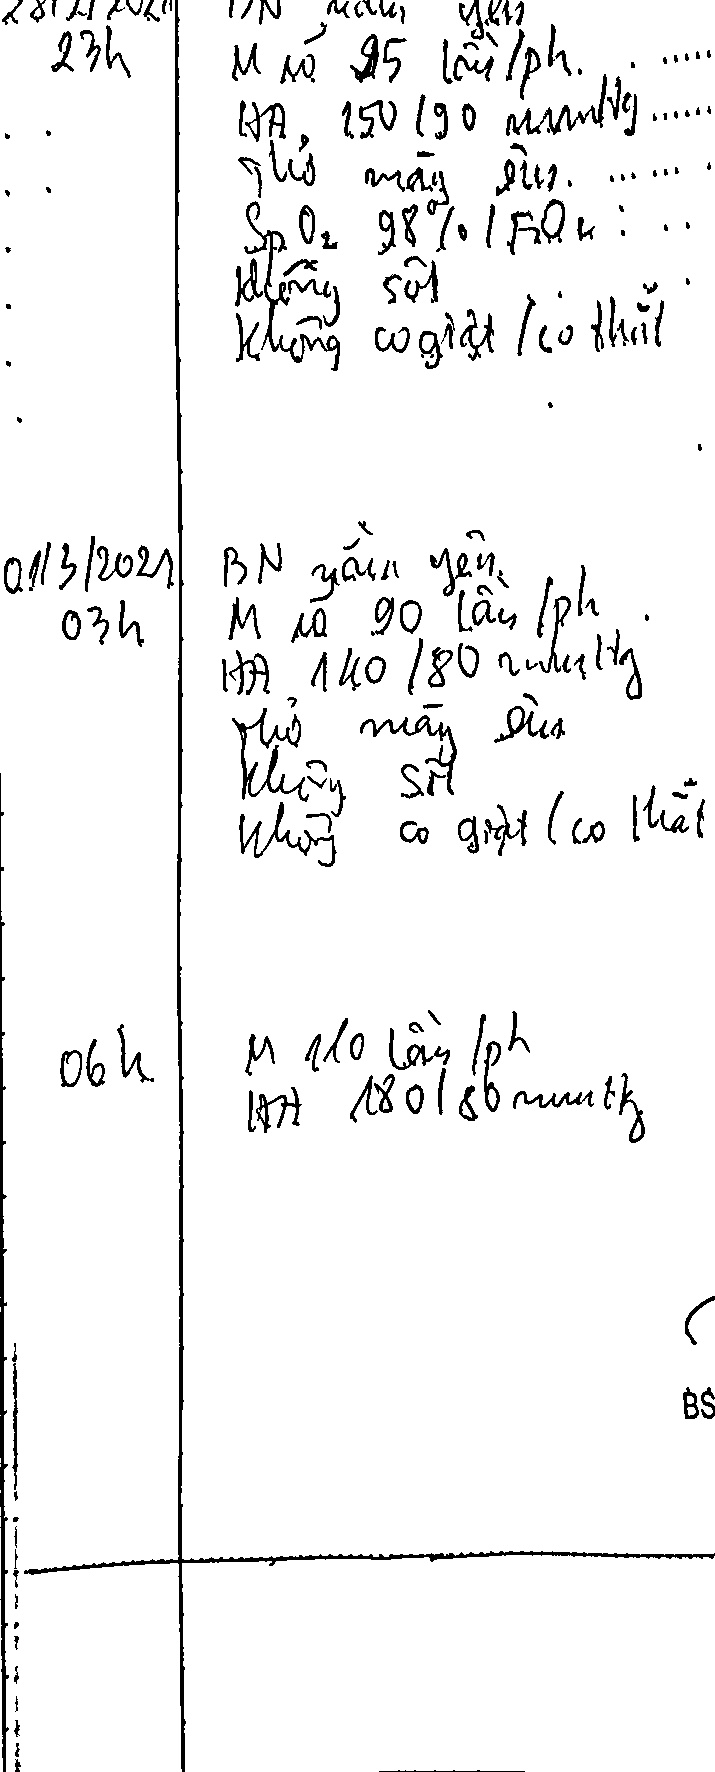 28/2/2021 BN nằm yên
23h M rõ 95 lần/ph.
HA 150/90 mmHg
Thở máy êm.
SpO2 98% / FiO2 :
Không sốt
Không co giật / co thắt
01/3/2021 BN nằm yên.
03h M rõ 90 lần/ph
HA 140/80 mmHg
Thở máy êm
Không sốt
Không co giật / co thắt
06h M 110 lần/ph
HA 180/80 mmHg
BS